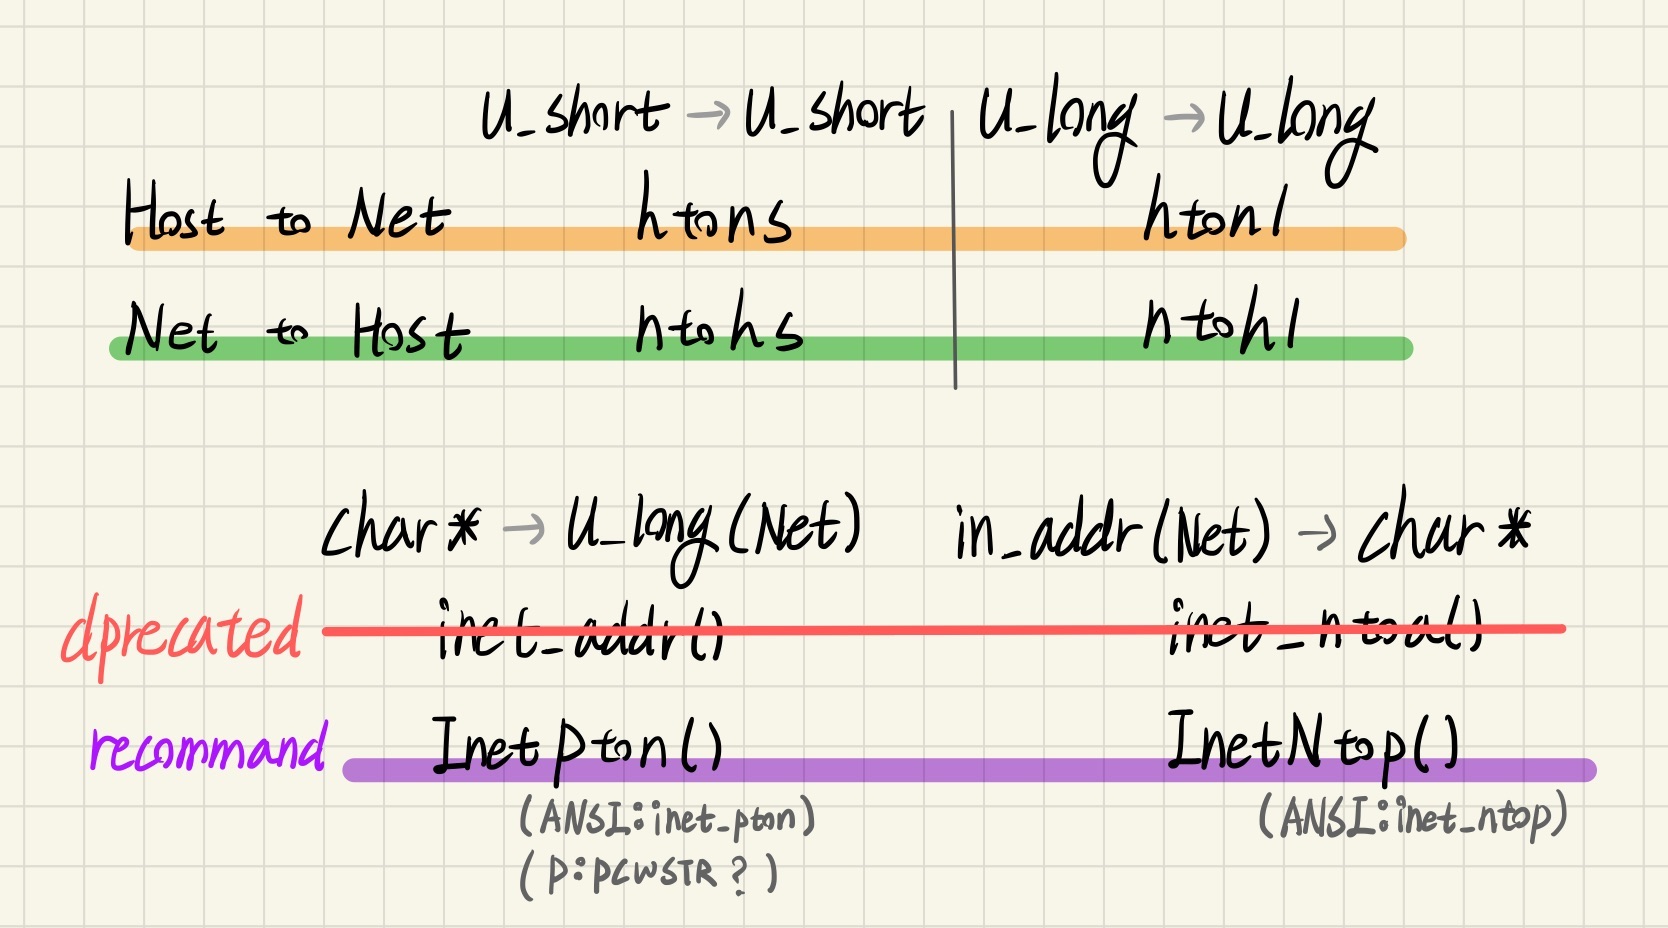 U_short → U_short | U_long → U_long
Host to Net htons htonl
Net to Host ntohs ntohl
char* → U_long(Net) in_addr(Net) → char*
dprecated inet_addr() inet_ntoa()
recommand InetPton() InetNtop()
(ANSI:inet_pton) (ANSI:inet_ntop)
(P:PCWSTR?)